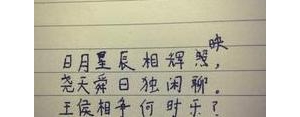 日月星辰相辉照映，
尧天舜日独闲聊。
王侯相争何时乐？